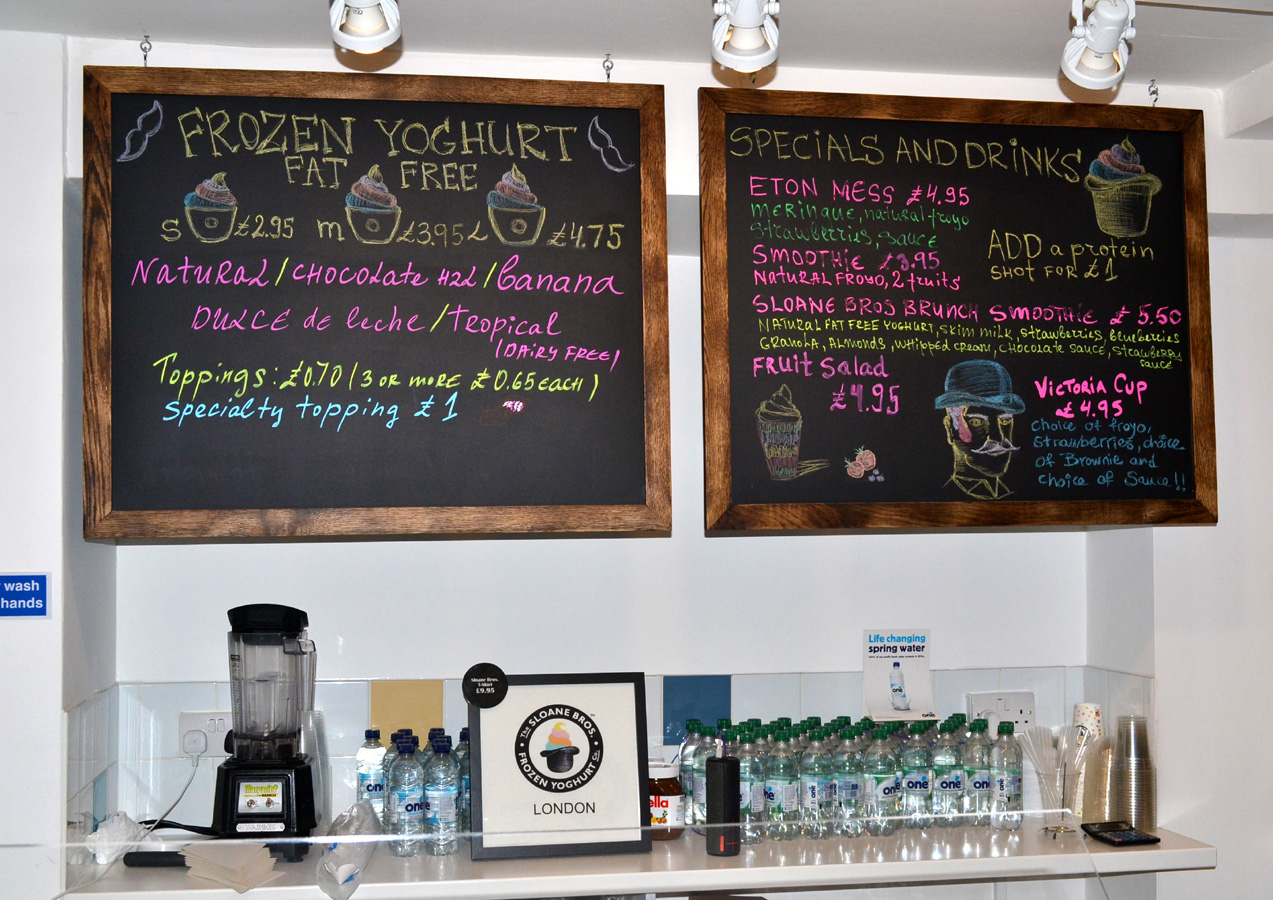 FROZEN YOGHURT
FAT FREE
S £2.95 M £3.95 L £4.75
NATURAL / CHOCOLATE H2L / Banana
DULCE de leche / Tropical
(DAIRY FREE)
Toppings: £0.70 (3 OR MORE £0.65 EACH)
Specialty topping £1
SPECIALS AND DRINKS
ETON MESS £4.95
Meringue, natural froyo
Strawberries, sauce
SMOOTHIE £3.95
NATURAL FROYO, 2 fruits
ADD a protein
SHOT FOR £1
SLOANE BROS BRUNCH SMOOTHIE £5.50
NATURAL FAT FREE YOGHURT, SKIM MILK, STRAWBERRIES, BLUEBERRIES
GRANOLA, ALMONDS, WHIPPED CREAM, CHOCOLATE SAUCE, STRAWBERRY
SAUCE
FRUIT Salad
£4.95
VICTORIA CUP
£4.95
choice of froyo,
strawberries, choice
of Brownie and
choice of Sauce!!
wash
hands
Life changing
spring water
one
Sloane Bros.
T-Shirt
£9.95
The SLOANE BROS.
FROZEN YOGHURT Co.
LONDON
ella
WARING
one
one
one
one
one
one
one
one